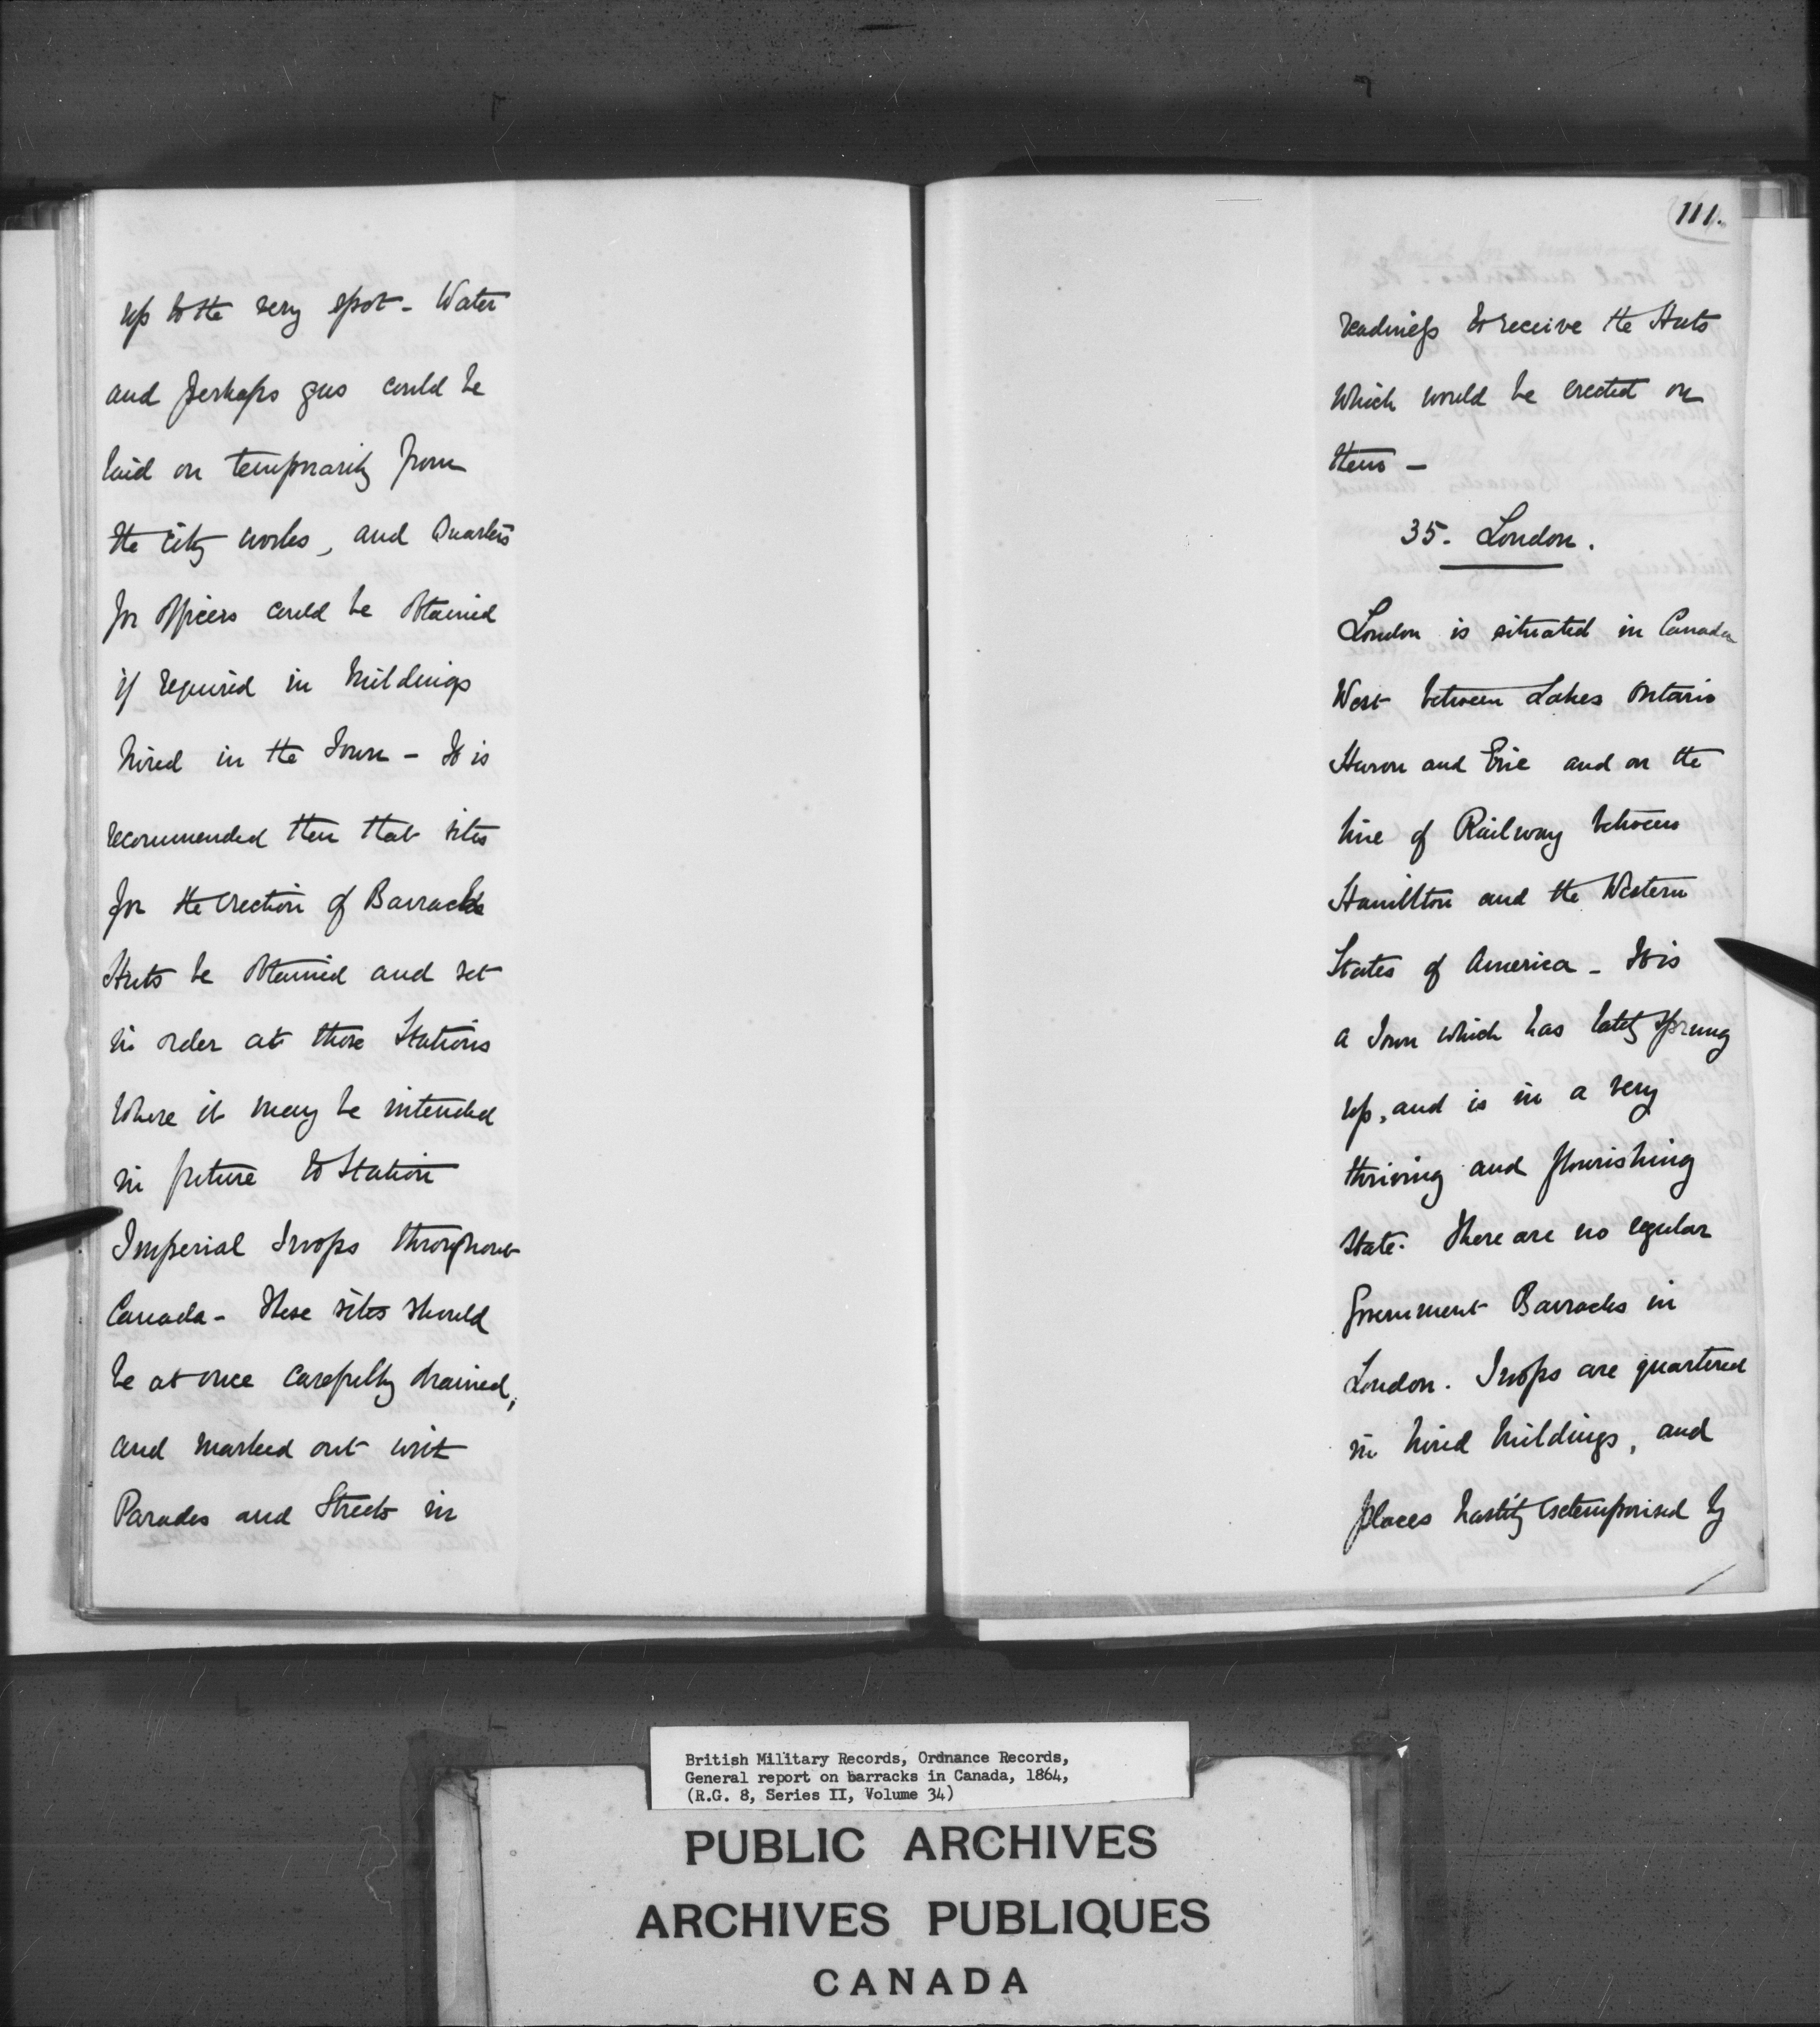 up to the very spot - Water
and perhaps gas could be
laid on temporarily from
the city works, and Quarters
for officers could be obtained
if required in buildings
hired in the Town - It is
recommended then that sites
for the erection of Barracks
Huts be obtained and set
in order at those Stations
where it may be intended
in future to Station
Imperial Troops throughout
Canada - These sites should
be at once carefully drained,
and marked out with
Parades and Streets in
111.
readiness to receive the Huts
which would be erected on
them -
35. London.
London is situated in Canada
West between Lakes Ontario
Huron and Erie and on the
line of Railway between
Hamillton and the Western
States of America - It is
a Town which has lately sprung
up, and is in a very
thriving and flourishing
state. There are no regular
Government Barracks in
London. Troops are quartered
in hired buildings, and
places hastily extemporised by
British Military Records, Ordnance Records,
General report on barracks in Canada, 1864,
(R.G. 8, Series II, Volume 34)
PUBLIC ARCHIVES
ARCHIVES PUBLIQUES
CANADA